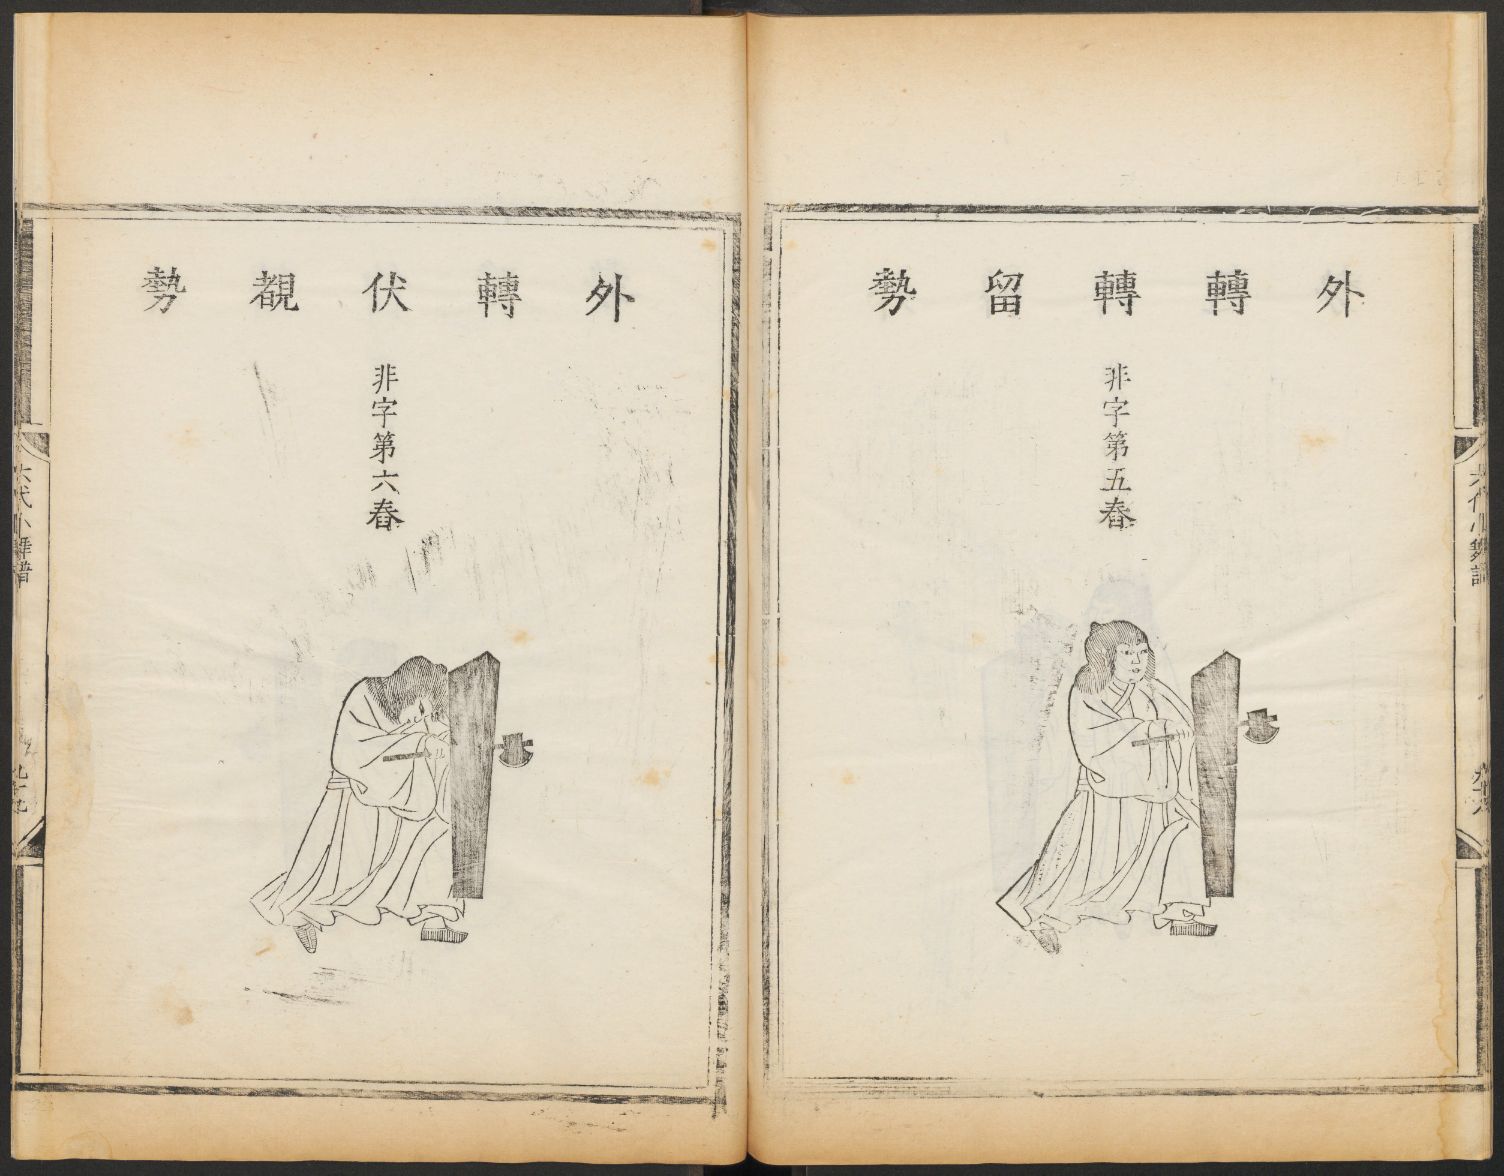 外轉轉留勢
非字第五舂
六代小舞譜
九十八
外轉伏覩勢
非字第六舂
六代小舞譜
九十九